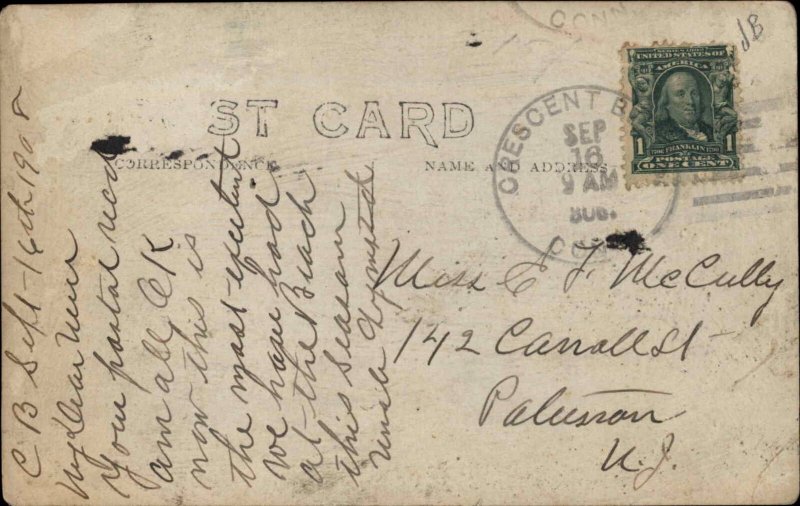 CONN
JB
ST CARD
CORRESPONDENCE
NAME AND ADDRESS
CRESCENT B
SEP
16
9 AM
CONN
SERIES 1902
UNITED STATES OF
AMERICA
1 FRANKLIN 1
POSTAGE
ONE CENT
C B Sept - 16th 1908
My Dear
Your postal recd
am all OK
now this is
the most
we have had
at the Beach
this season
Uncle
Miss E F. McCully
142 Carroll St
N.J.